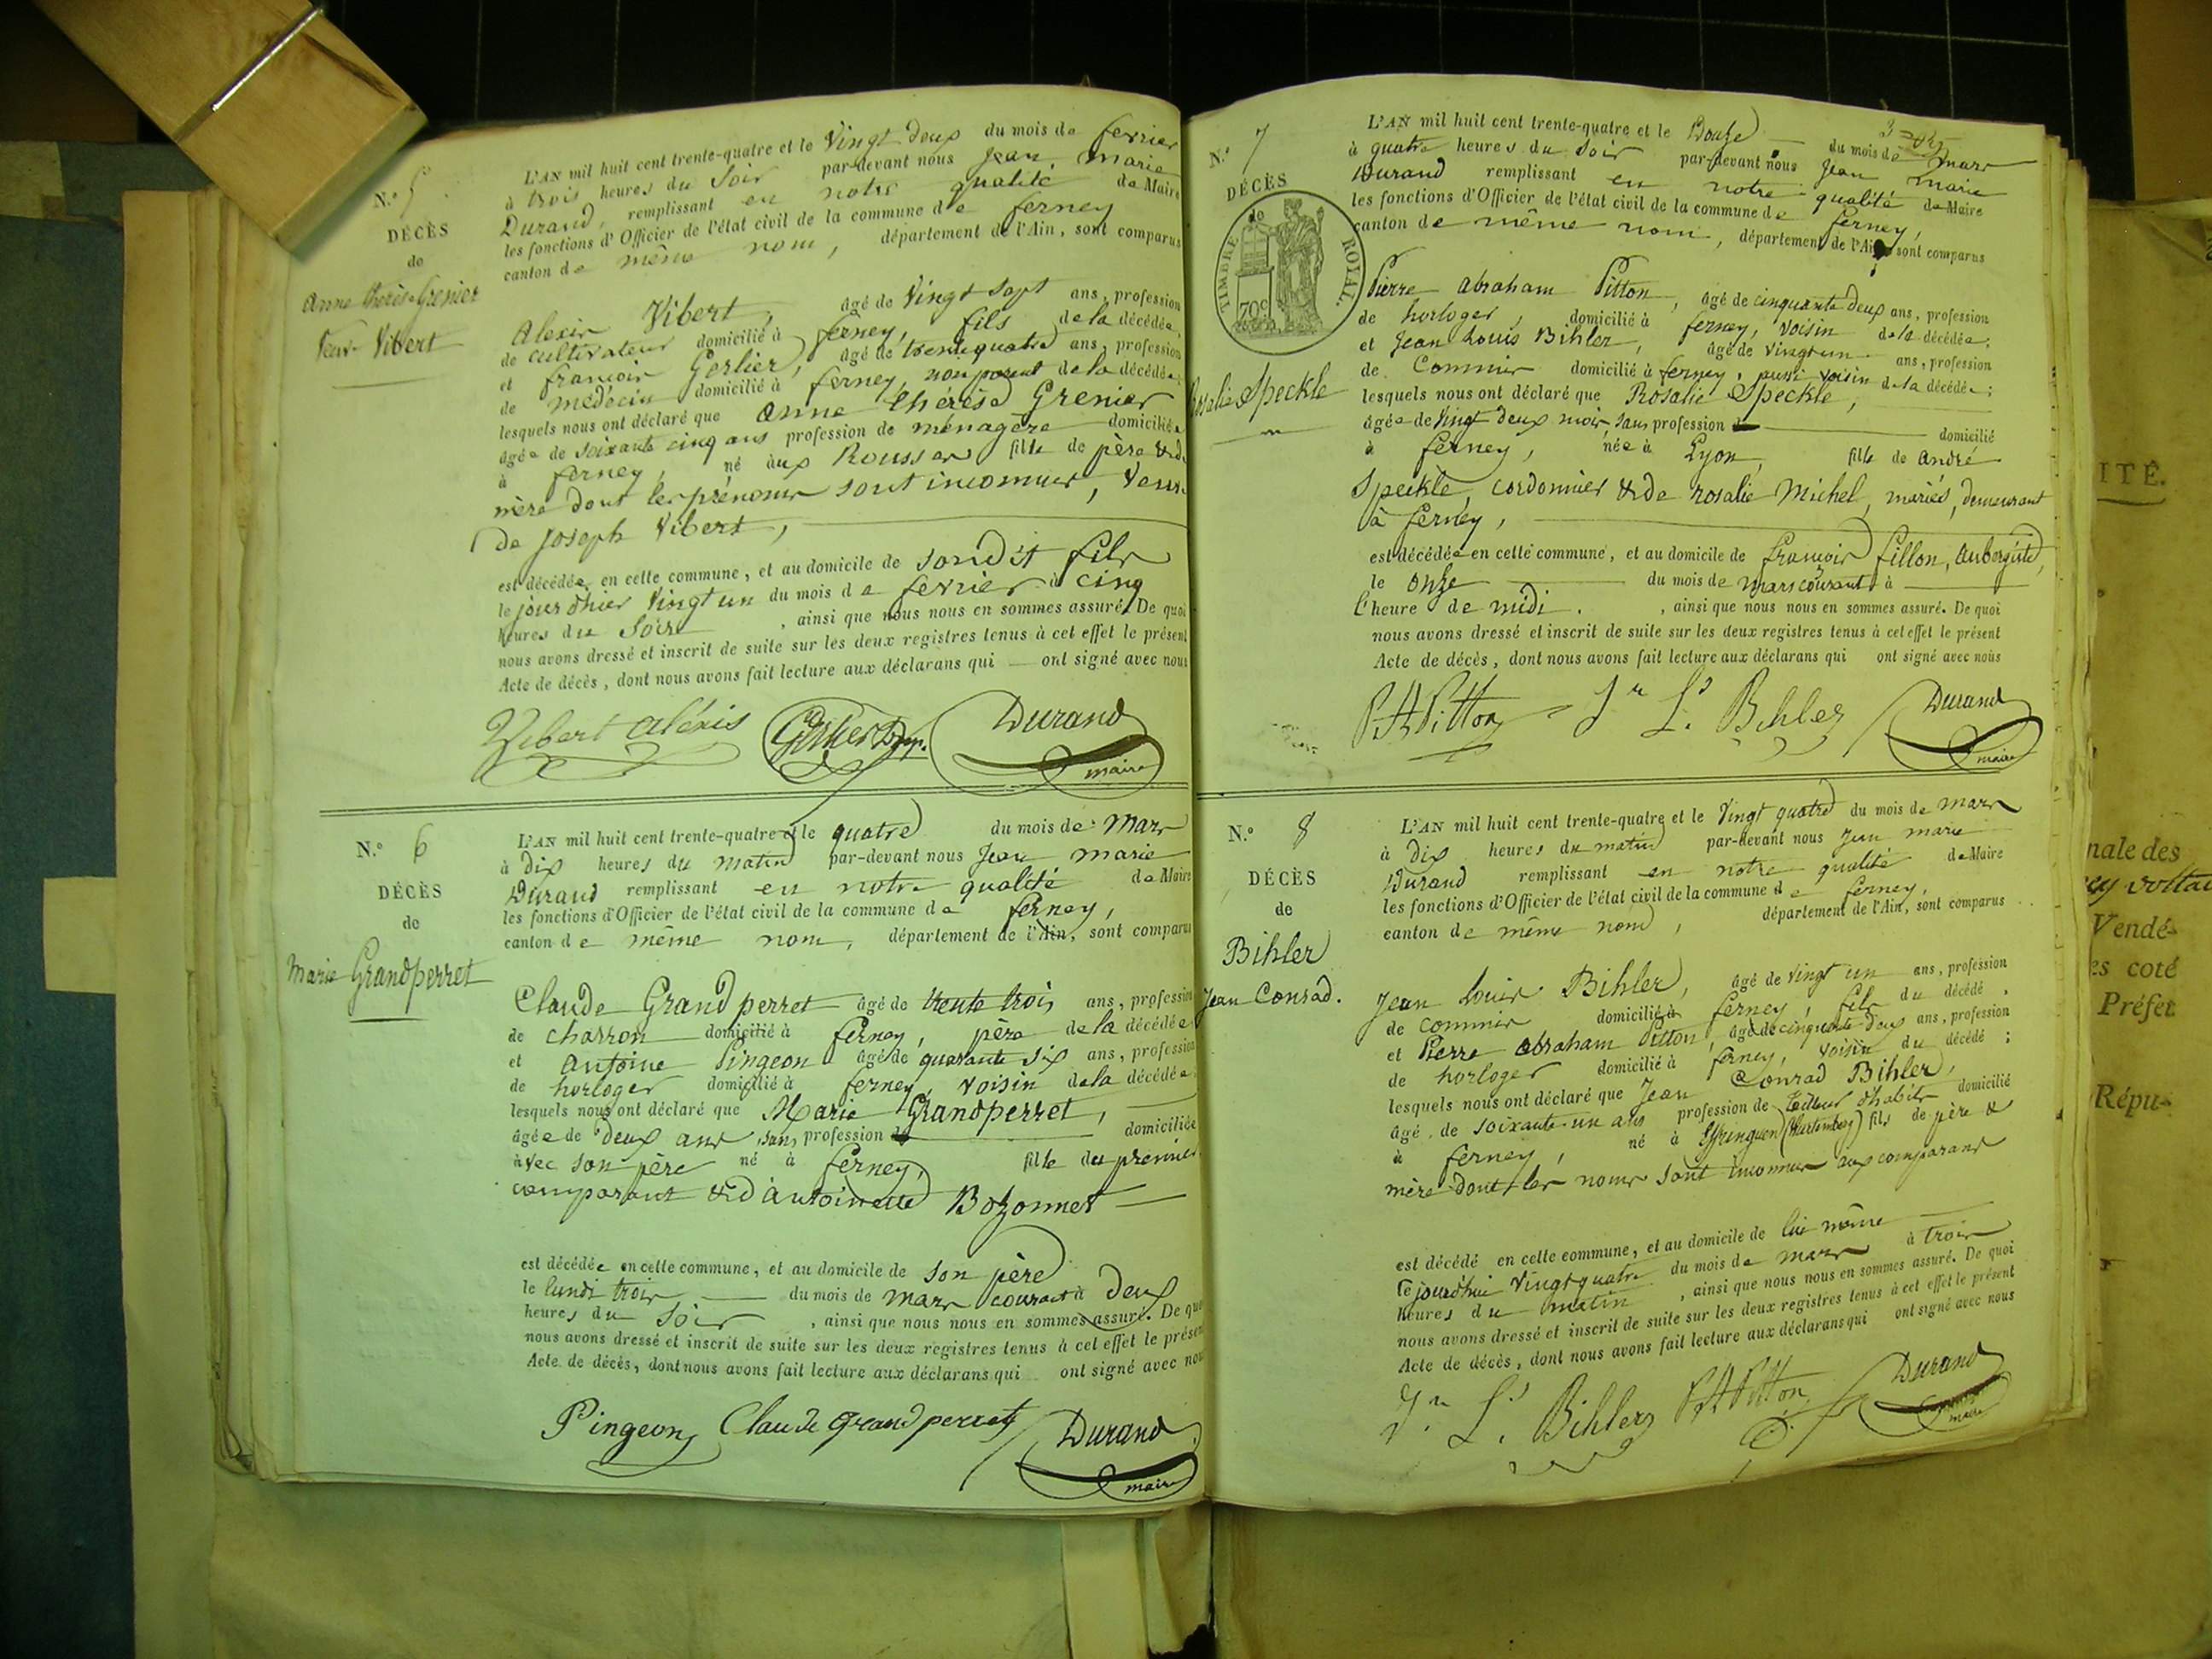 N.o 5
DÉCÈS
de
Anne Thérèse Grenier
Veuve Vibert
L'AN mil huit cent trente-quatre et le Vingt deux du mois de fevrier
à trois heures du Soir par-devant nous Jean Marie
Durand, remplissant en notre qualité de Maire
les fonctions d'Officier de l'état civil de la commune de ferney
canton de même nom, département de l'Ain, sont comparus
Alexis Vibert, âgé de Vingt sept ans, profession
de cultivateur domicilié à ferney, fils de la décédée,
et françois Gerlier, âgé de trente quatre ans, profession
de médecin domicilié à ferney, non parent de la décédée;
lesquels nous ont déclaré que Anne thérèse Grenier
âgée de soixante cinq ans profession de ménagère domiciliée
à ferney, né aux Rousses fille de père & de
mère dont les prénoms sont inconnus, Veuve
de Joseph Vibert,
est décédée en cette commune, et au domicile de sondit fils
le jour d'hier Vingt un du mois de fevrier à cinq
heures du Soir, ainsi que nous nous en sommes assuré. De quoi
nous avons dressé et inscrit de suite sur les deux registres tenus à cet effet le présent
Acte de décès, dont nous avons fait lecture aux déclarans qui ont signé avec nous
Vibert Alexis Durand
maire
N.o 6
DÉCÈS
de
Marie Grandperret
L'AN mil huit cent trente-quatre et le quatre du mois de Mars
à dix heures du matin par-devant nous Jean Marie
Durand remplissant en notre qualité de Maire
les fonctions d'Officier de l'état civil de la commune de ferney,
canton de même nom, département de l'Ain, sont comparus
Claude Grandperret âgé de trente trois ans, profession
de charron domicilié à ferney, père de la décédée
et Antoine Pingeon âgé de quarante six ans, profession
de horloger domicilié à ferney, voisin de la décédée
lesquels nous ont déclaré que Marie Grandperret,
âgée de deux ans, sans profession domiciliée
avec son père né à ferney, fille du premier
comparant & d'Antoinette Bozonnet
est décédée en cette commune, et au domicile de son père
le lundi trois du mois de mars courant à deux
heures du soir, ainsi que nous nous en sommes assuré. De quoi
nous avons dressé et inscrit de suite sur les deux registres tenus à cet effet le présent
Acte de décès, dont nous avons fait lecture aux déclarans qui ont signé avec nous
Pingeon Claude Grandperret Durand
maire
N.o 7
DÉCÈS
de
TIMBRE ROYAL.
70c
Rosalie Speckle
L'AN mil huit cent trente-quatre et le Douze du mois de mars
à quatre heures du Soir par-devant nous Jean marie
Durand remplissant en notre qualité de Maire
les fonctions d'Officier de l'état civil de la commune de ferney,
canton de même nom, département de l'Ain sont comparus
Pierre Abraham Pitton, âgé de cinquante deux ans, profession
de horloger, domicilié à ferney, voisin de la décédée;
et Jean Louis Bihler, âgé de vingt un ans, profession
de Commis domicilié à ferney, aussi voisin de la décédée;
lesquels nous ont déclaré que Rosalie Speckle,
âgée de Vingt deux mois, sans profession domicilié
à ferney, née à Lyon, fille de André
Speckle, cordonnier & de rosalie Michel, mariés, demeurant
à ferney,
est décédée en cette commune, et au domicile de françois fillon, aubergiste,
le Onze du mois de mars courant à
l'heure de midi., ainsi que nous nous en sommes assuré. De quoi
nous avons dressé et inscrit de suite sur les deux registres tenus à cet effet le présent
Acte de décès, dont nous avons fait lecture aux déclarans qui ont signé avec nous
PA Pitton Jn Ls Bihler Durand
maire
N.o 8
DÉCÈS
de
Bihler
Jean Conrad.
L'AN mil huit cent trente-quatre et le Vingt quatre du mois de mars
à Dix heures du matin par-devant nous Jean marie
Durand remplissant en notre qualité de Maire
les fonctions d'Officier de l'état civil de la commune de ferney,
canton de même nom, département de l'Ain, sont comparus
Jean Louis Bihler, âgé de vingt un ans, profession
de commis domicilié à ferney, fils du décédé,
et Pierre Abraham Pitton, âgé de cinquante deux ans, profession
de horloger domicilié à ferney, voisin du décédé;
lesquels nous ont déclaré que Jean Conrad Bihler,
âgé de soixante un ans profession de tailleur d'habits domicilié
à ferney, né à (Wurtemberg) fils de père &
mère dont les noms sont inconnus aux comparans
est décédé en cette commune, et au domicile de lui même
le jourd'hui Vingt quatre du mois de mars à trois
heures du matin, ainsi que nous nous en sommes assuré. De quoi
nous avons dressé et inscrit de suite sur les deux registres tenus à cet effet le présent
Acte de décès, dont nous avons fait lecture aux déclarans qui ont signé avec nous
Jn Ls Bihler PA Pitton Durand
maire
ITÉ.
nale des
Vendé-
es coté
Préfet
Répu-